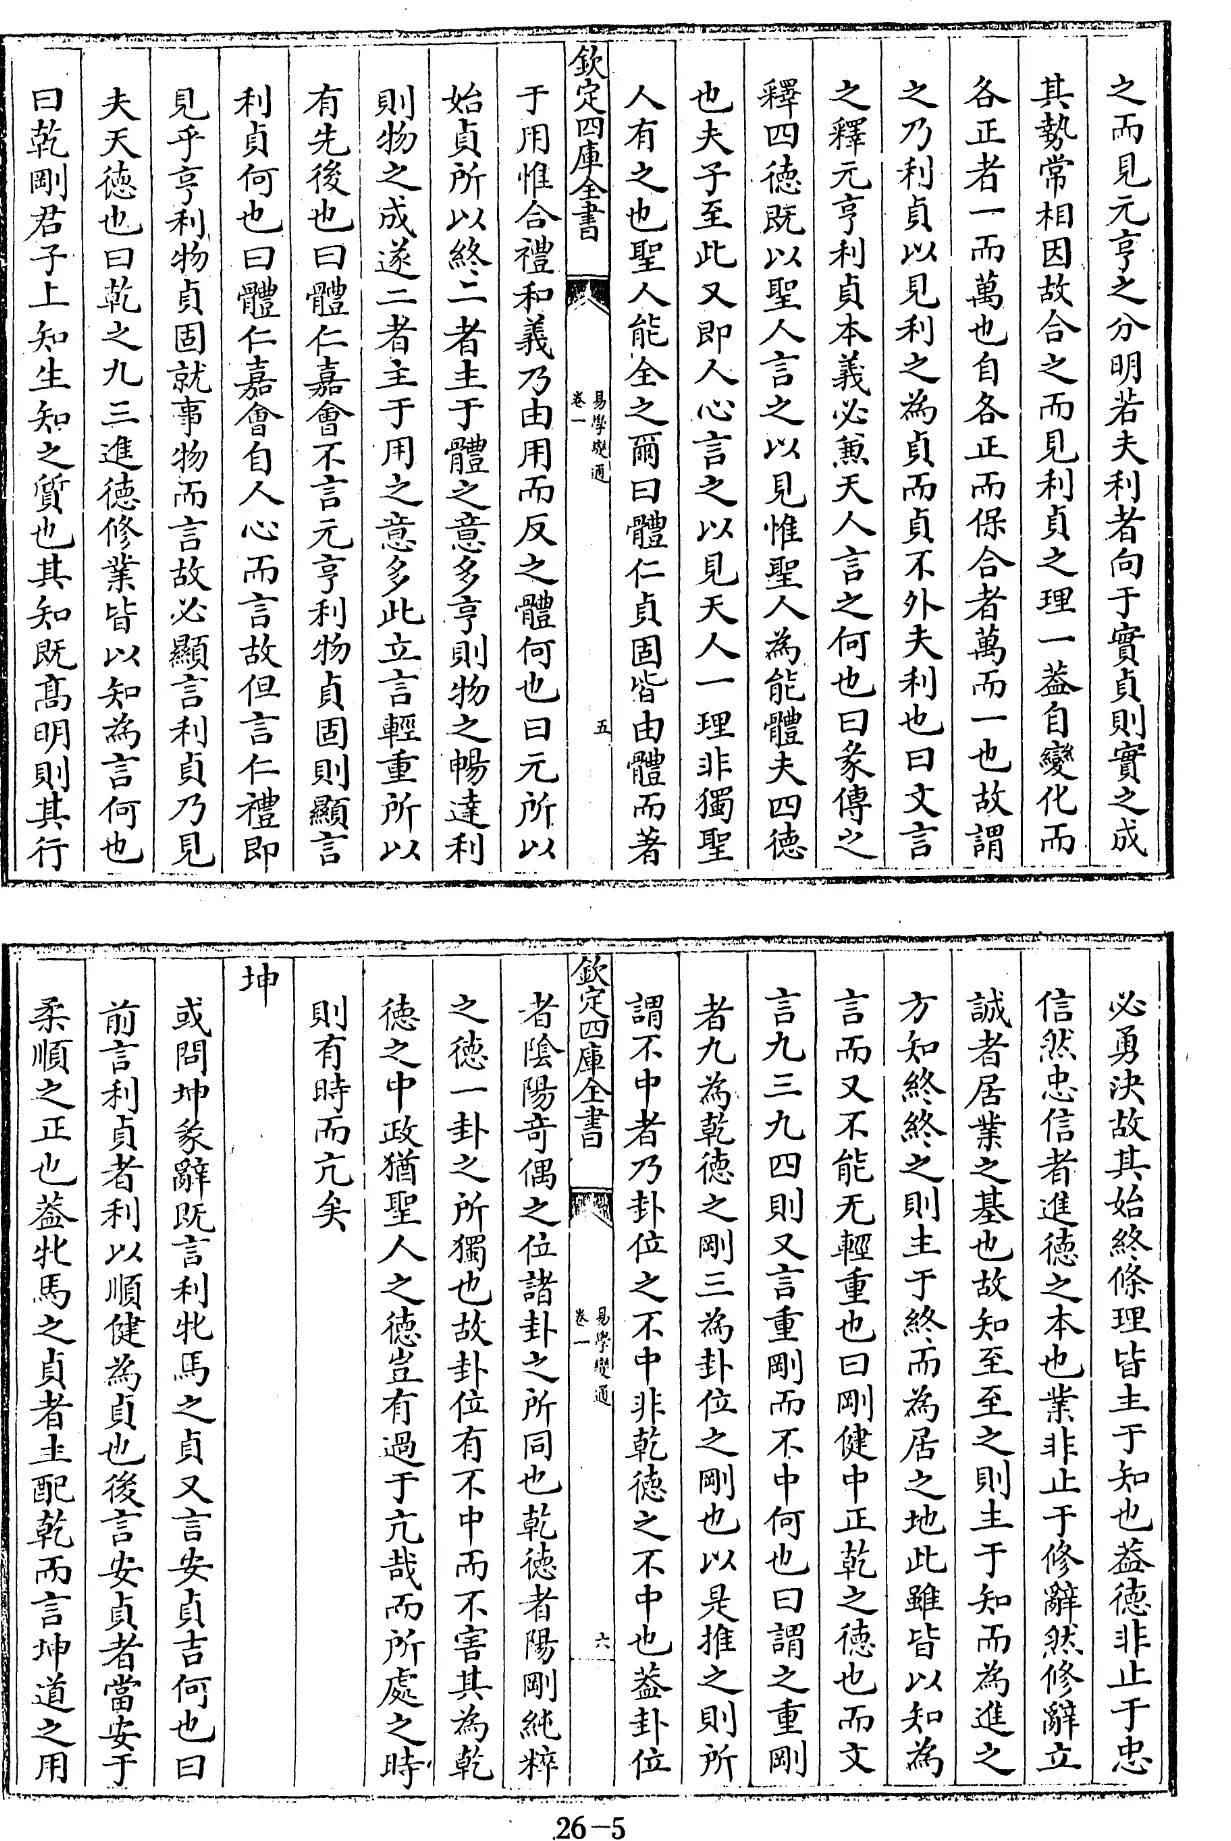 之而見元亨之分明若夫利者向于實貞則實之成
其勢常相因故合之而見利貞之理一蓋自變化而
各正者一而萬也自各正而保合者萬而一也故謂
之乃利貞以見利之為貞而貞不外夫利也曰文言
之釋元亨利貞本義必兼天人言之何也曰彖傳之
釋四徳既以聖人言之以見惟聖人為能體夫四徳
也夫子至此又即人心言之以見天人一理非獨聖
人有之也聖人能全之爾曰體仁貞固皆由體而著
欽定四庫全書
易學變通
卷一
五
于用惟合禮和義乃由用而反之體何也曰元所以
始貞所以終二者主于體之意多亨則物之暢達利
則物之成遂二者主于用之意多此立言輕重所以
有先後也曰體仁嘉會不言元亨利物貞固則顯言
利貞何也曰體仁嘉會自人心而言故但言仁禮即
見乎亨利物貞固就事物而言故必顯言利貞乃見
夫天徳也曰乾之九三進徳修業皆以知為言何也
曰乾剛君子上知生知之質也其知既髙明則其行
必勇決故其始終條理皆主于知也蓋徳非止于忠
信然忠信者進徳之本也業非止于修辭然修辭立
誠者居業之基也故知至至之則主于知而為進之
方知終終之則主于終而為居之地此雖皆以知為
言而又不能无輕重也曰剛健中正乾之徳也而文
言九三九四則又言重剛而不中何也曰謂之重剛
者九為乾徳之剛三為卦位之剛也以是推之則所
謂不中者乃卦位之不中非乾徳之不中也蓋卦位
欽定四庫全書
易學變通
卷一
六
者陰陽竒偶之位諸卦之所同也乾徳者陽剛純粹
之徳一卦之所獨也故卦位有不中而不害其為乾
徳之中政猶聖人之徳豈有過于亢哉而所處之時
則有時而亢矣
坤
或問坤彖辭既言利牝馬之貞又言安貞吉何也曰
前言利貞者利以順健為貞也後言安貞者當安于
柔順之正也蓋牝馬之貞者主配乾而言坤道之用
26-5